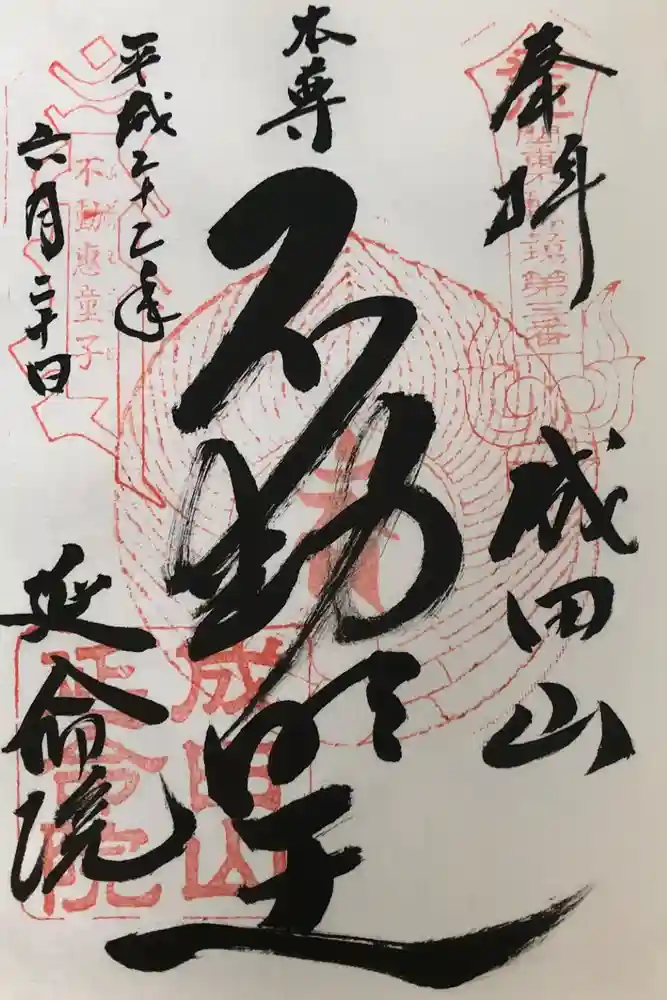 奉拝
成田山
第三番
本尊
不動明王
平成二十二年
六月二十日
不動惠童子
延命院
成田山
延命院